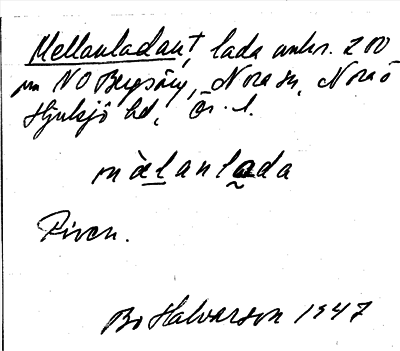 Mellanladan, † lada omkr. 200
m NO Bergsäng, Nora sn, Nora o
Hjulsjö hd, Ör. l.
mèlanlada
Riven.
Bo Halvarson 1947